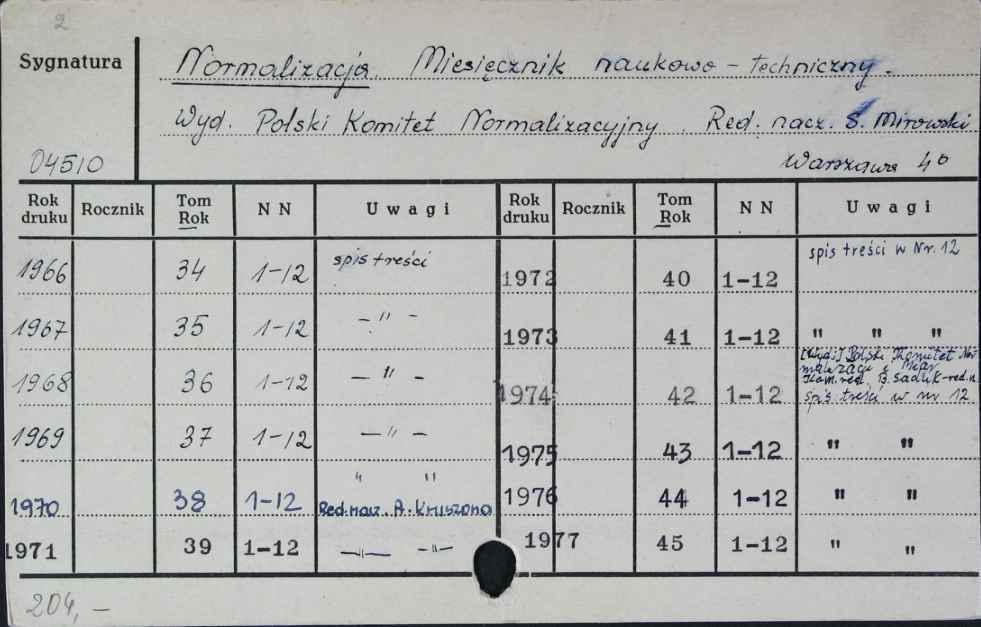 2
Sygnatura
Normalizacja. Miesięcznik naukowo-techniczny.
Wyd. Polski Komitet Normalizacyjny. Red. nacz. S. Mirowski
04510
Warszawa 4°
Rok druku Rocznik Tom Rok NN Uwagi Rok druku Rocznik Tom Rok NN Uwagi
1966 34 1-12 spis treści 1972 40 1-12 spis treści w Nr. 12
1967 35 1-12 -"- 1973 41 1-12 " " "
1968 36 1-12 -"- 1974 42 1-12 [Wyd:] Polski Komitet Nor
malizacji i Miar
Kom. red. B. Sadlik-red.n.
spis treści w nr 12
1969 37 1-12 -"- 1975 43 1-12 " "
1970 38 1-12 " " 1976 44 1-12 " "
Red. nacz. A. Kruszona
1971 39 1-12 -"- -"- 1977 45 1-12 " "
204,-